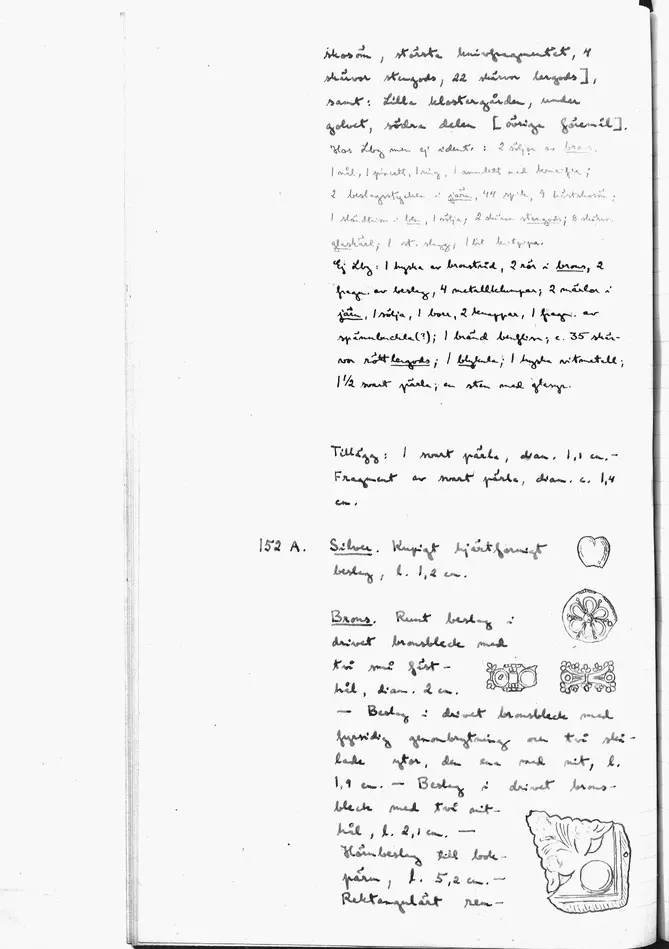 skosöm, största knivfragmentet, 4
skärvor stengods, 22 skärvor lergods],
samt: Lilla klostergården, under
golvet, södra delen [övriga föremål].
Hos Lby men ej ident.: 2 söljor av brons,
1 nål, 1 pincett, 1 ring, 1 amulett med
2 beslagstycken i järn, 44 spik, 9 hästskosöm;
1 i ben, 1 sölja; 2 skärvor stengods; 8 skärv.
glaskärl; 1 st. slagg; 1 bit kritpipa.
Ej Lby: 1 hyska av bronstråd, 2 rör i brons, 2
fragm. av beslag, 4 metallklumpar; 2 märlor i
järn, 1 sölja, 1 borr, 2 knappar, 1 fragm. av
spännbuckla(?); 1 bränd benflisa; c. 35 skär-
vor rött lergods; 1 blykula; 1 hyska vitmetall;
1 1/2 svart pärla; en sten med glasyr.
Tillägg: 1 svart pärla, diam. 1,1 cm. –
Fragment av svart pärla, diam. c. 1,4
cm.
152 A. Silver. Kupigt hjärtformigt
beslag, l. 1,2 cm.
Brons. Runt beslag i
drivet bronsbleck med
två små fäst-
hål, diam. 2 cm.
— Beslag i drivet bronsbleck med
fyrsidig genombrytning och två skå-
lade ytor, den ena med nit, l.
1,9 cm. — Beslag i drivet brons-
bleck med två nit-
hål, l. 2,1 cm. —
Hörnbeslag till bok-
pärm, l. 5,2 cm. —
Rektangulärt rem-